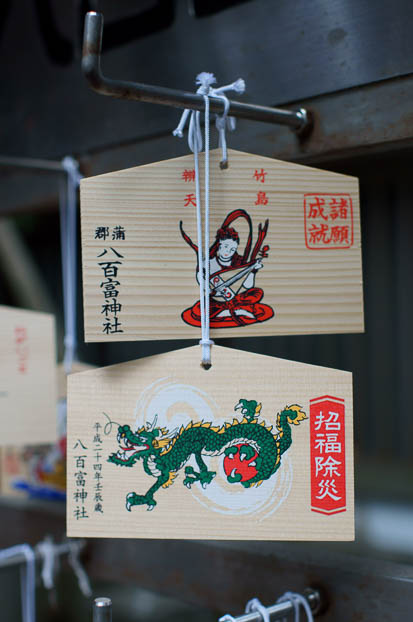 竹島
辨天
諸願
成就
蒲郡
八百富神社
招福除災
平成二十四年壬辰歳
八百富神社